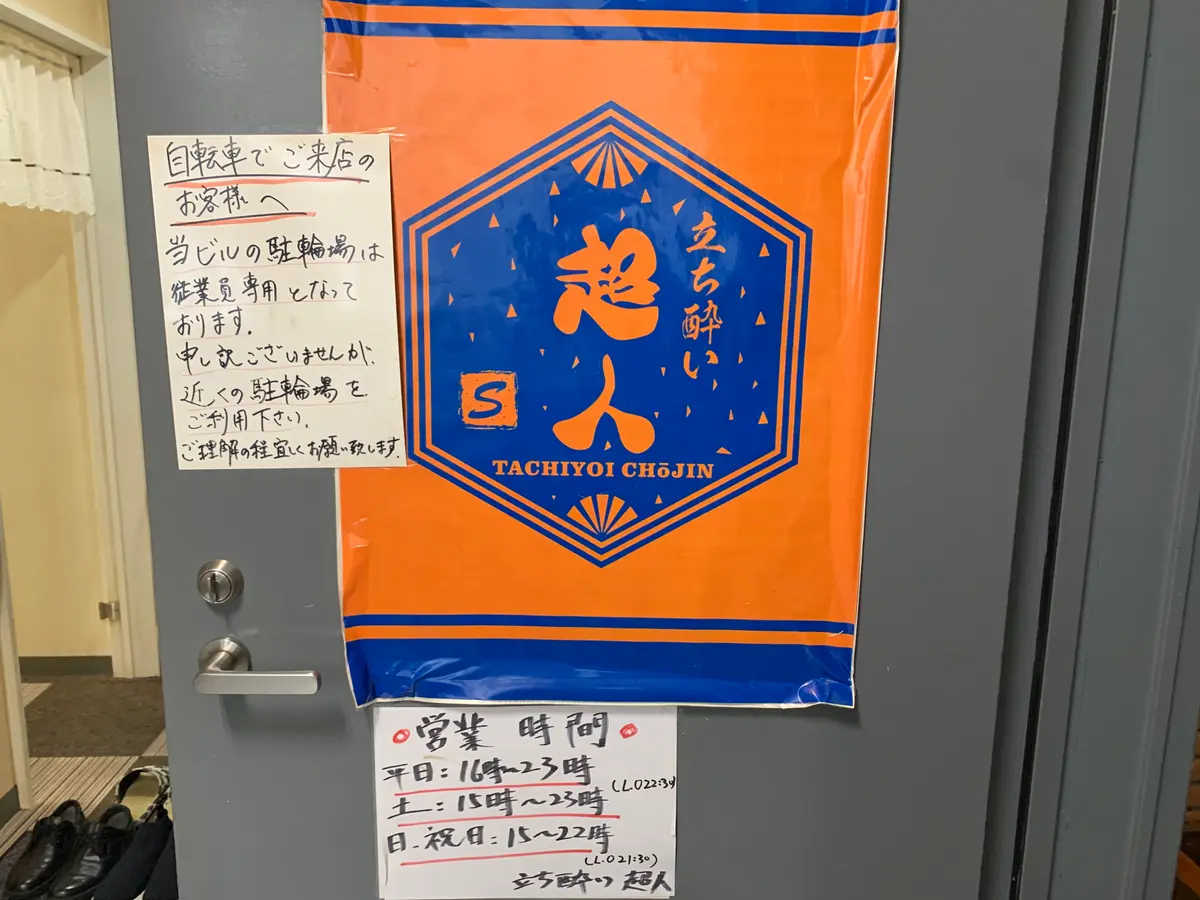 自転車でご来店の
お客様へ
当ビルの駐輪場は
従業員専用となって
おります.
申し訳ございませんが、
近くの駐輪場を
ご利用下さい.
ご理解の程宜しくお願い致します.
立ち酔い
超人
S
TACHIYOI CHōJIN
営業時間
平日:16時~23時
(L.O22:30
土:15時~23時
日.祝日:15~22時
(L.O21:30)
立ち酔い 超人